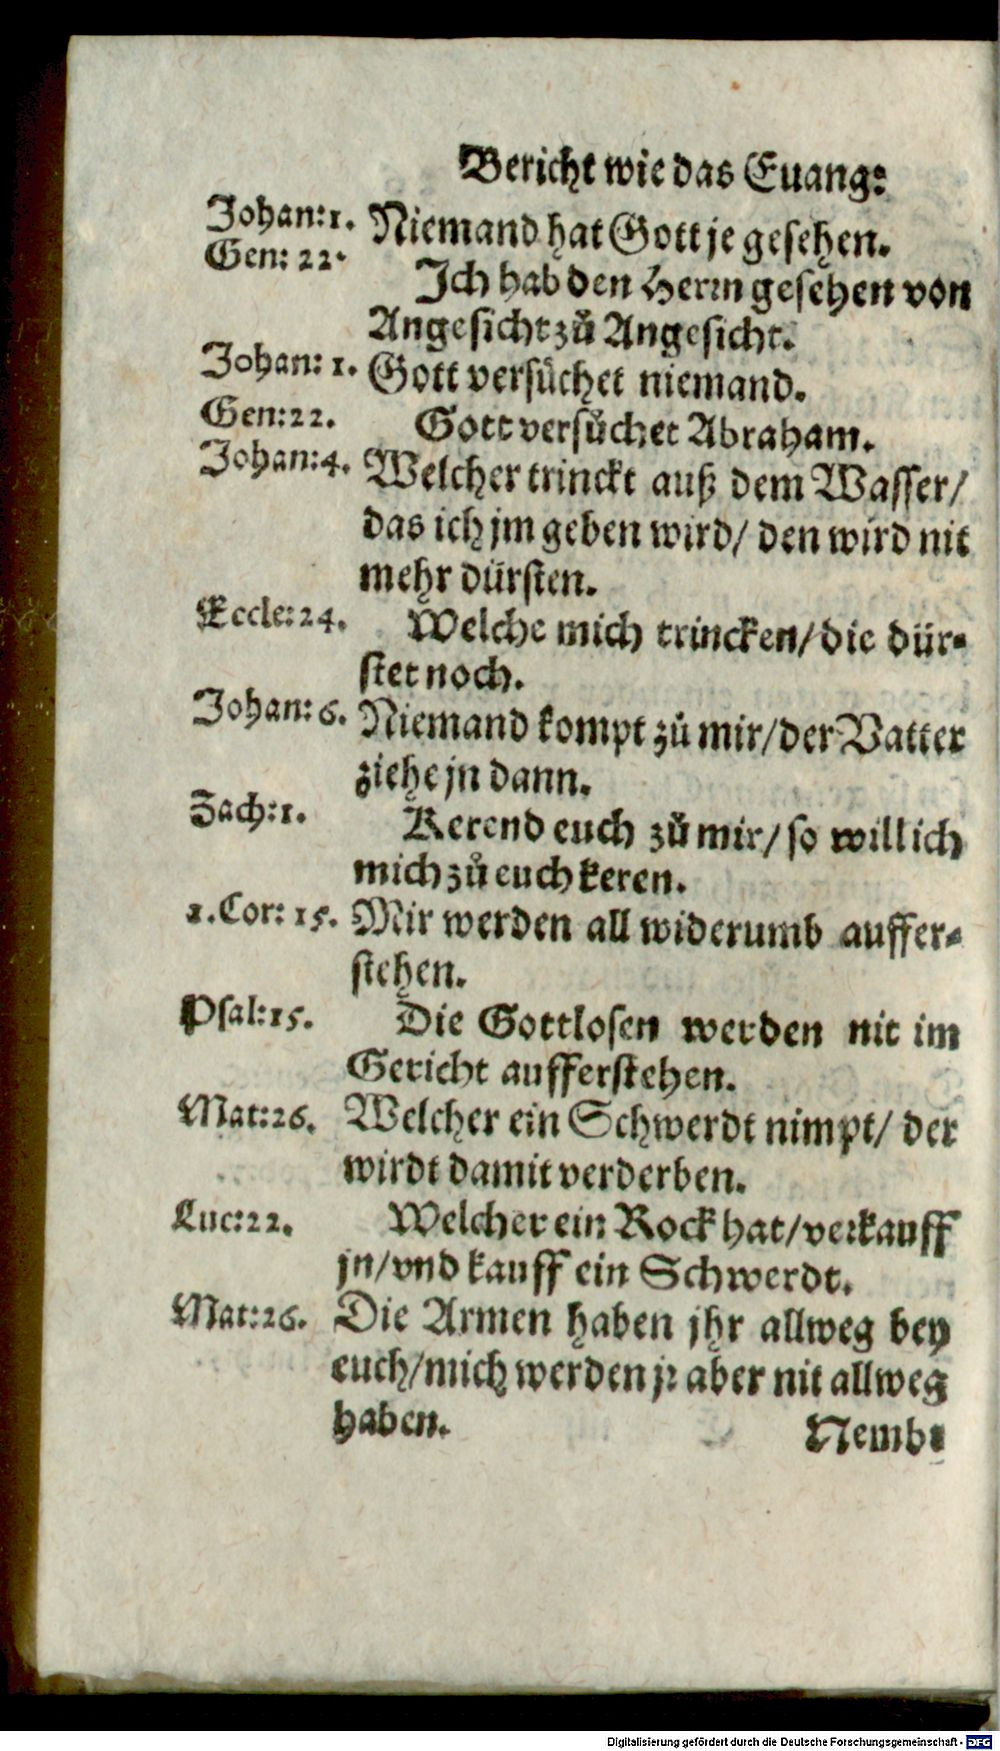 Bericht wie das Euang:
Johan:1. Niemand hat Gott je gesehen.
Gen: 22. Ich hab den Herrn gesehen von
Angesicht zů Angesicht.
Johan: 1. Gott versůchet niemand.
Gen:22. Gott versůchet Abraham.
Johan:4. Welcher trinckt auß dem Wasser/
das ich jm geben wird/ den wird nit
mehr dürsten.
Eccle:24. Welche mich trincken/die dür-
stet noch.
Johan:6. Niemand kompt zů mir/der Vatter
ziehe jn dann.
Zach:1. Kerend euch zů mir/so will ich
mich zů euch keren.
1.Cor: 15. Mir werden all widerumb auffer-
stehen.
Psal:15. Die Gottlosen werden nit im
Gericht aufferstehen.
Mat:26. Welcher ein Schwerdt nimpt/ der
wirdt damit verderben.
Luc:22. Welcher ein Rock hat/verkauff
jn/vnd kauff ein Schwerdt.
Mat:26. Die Armen haben jhr allweg bey
euch/mich werden jr aber nit allweg
haben.
Nemb-
Digitalisierung gefördert durch die Deutsche Forschungsgemeinschaft - DFG